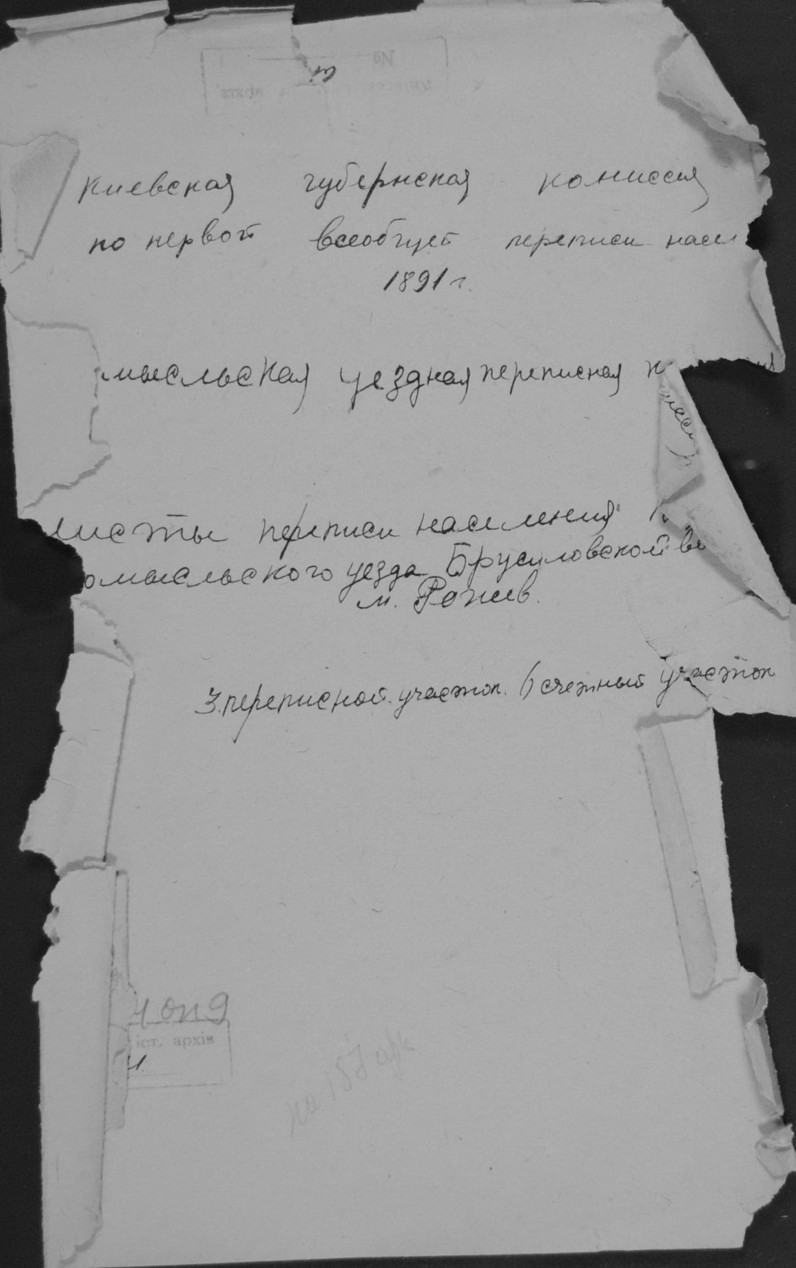 Киевская губернская комиссия
по первой всеобщей переписи насел
1891 г.
мысльская уездная переписная к
листы переписи населения
омысльского уезда Брусиловской во
м. Рожев.
3. переписной участок. 6 счетный участок
оп 9
іст. архів
на 187 арк